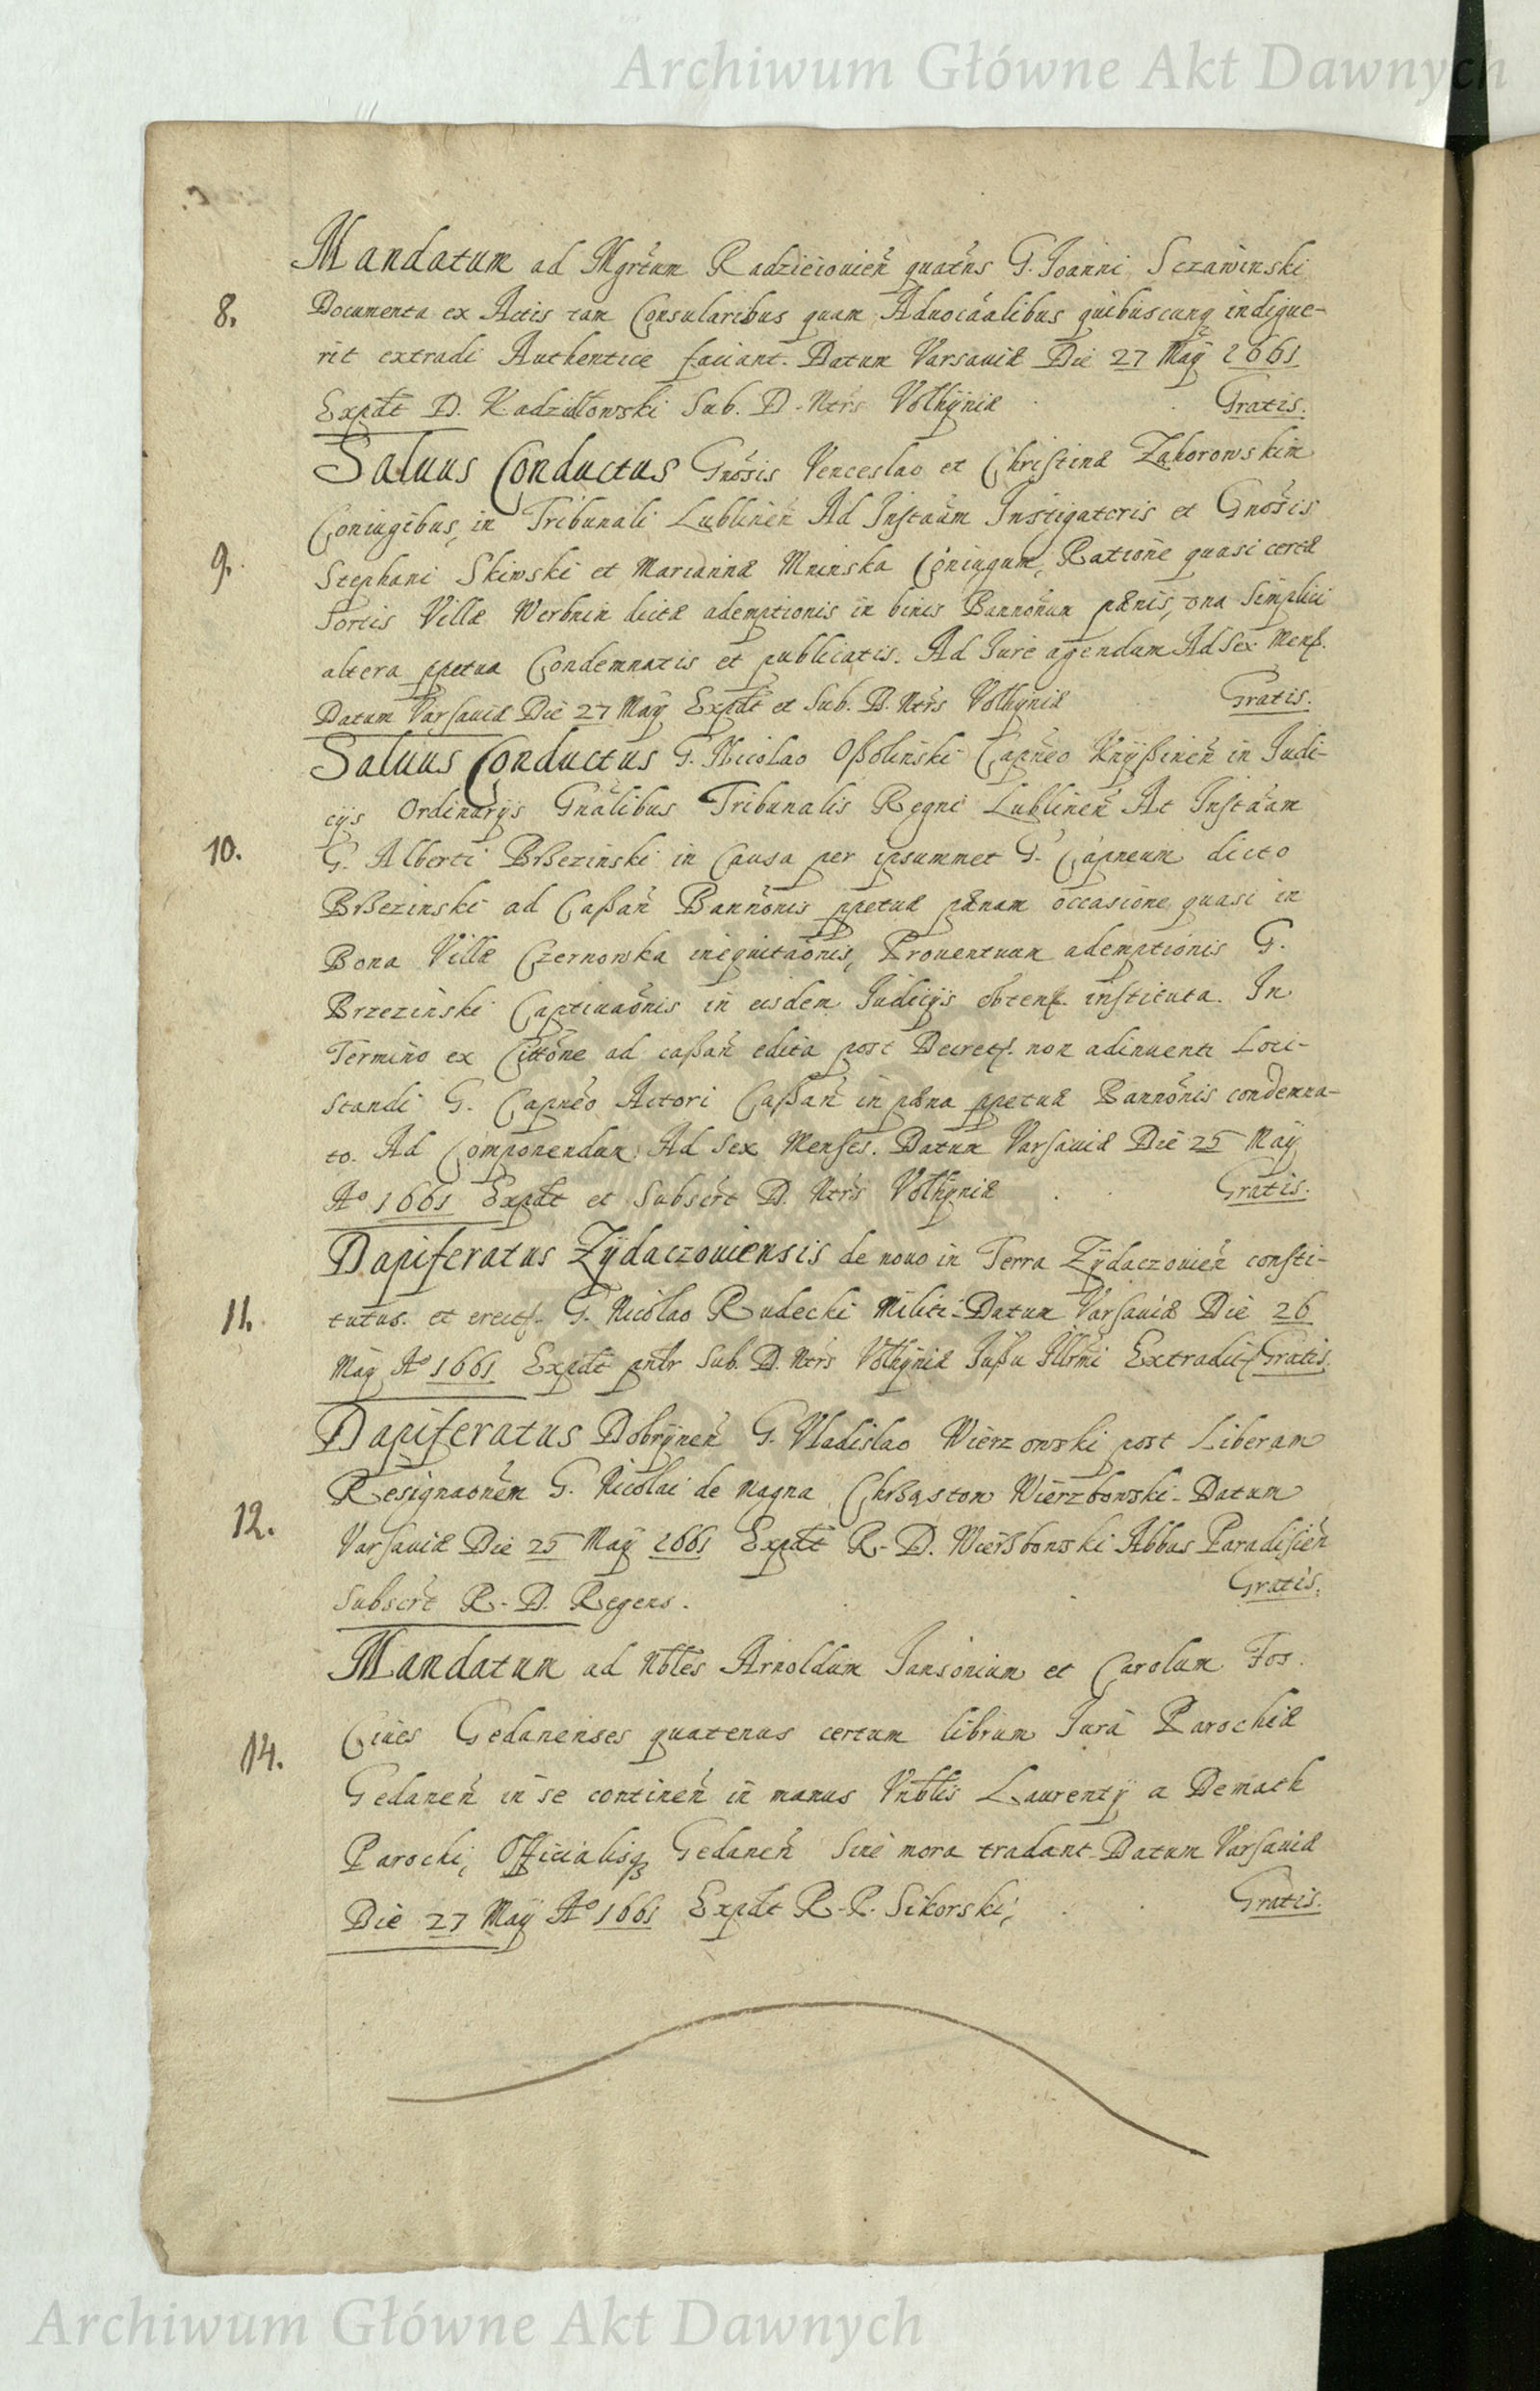 Archiwum Główne Akt Dawnych
Mandatum ad Mgrtum Radzieiouien̄ quatn̄s G. Joanni Sczawinski
8. Documenta ex Actis tam Consularibus quam Aduocaālibus quibuscunq indigue-
rit extradi Authentice faciant. Datum Varsauiæ Die 27 Maÿ 1661
Expdt D. Kadzidłowski Sub. D. Ntrs Volhÿniæ Gratis.
Saluus Conductus Gnōsis Venceslao et Christinæ Zahorowskim
Coniugibus, in Tribunali Lublinen̄ Ad Instaūm Instigatoris et Gnōsis
9. Stephani Skiwski et Mariannæ Mninska Coniugum, Ratione quasi certæ
sortis Villæ Werbnin dictæ ademptionis in binis Bannōnum pænis, vna simplici
altera ppetua Condemnatis et publicatis. Ad Jure agendum Ad Sex Mens.
Datum Varsauiæ Die 27 Maÿ Expdt et Sub. D. Ntrs Volhÿniæ Gratis.
Saluus Conductus G. Nicolao Oßolinski Capn̄eo Knÿßinen̄ in Judi-
cijs Ordinarijs Gnālibus Tribunalis Regni Lublinen̄ At Instaām
10. G. Alberti Brßezinski in Causa per ipsummet G. Capneum dicto
Brßezinski ad Caßan̄ Bannōnis ppetuæ pænam occasione quasi in
Bona Villæ Czernowska inequitaōnis, Prouentuum ademptionis G.
Brzezinski Captiuaōnis in eisdem Judicijs obtent. instituta. In
Termino ex Cittōne ad caßan̄ edita post Decret. non adinuenti Loci-
standi G. Capn̄eo Actori Caßan̄ in pæna ppetuæ Bannōnis condemna-
to. Ad Componendum Ad Sex Menses. Datum Varsauiæ Die 25 Maÿ
Aº 1661 Expdt et Subscrt D. Ntrs Volhÿniæ Gratis.
Dapiferatus Zÿdaczouiensis de nouo in Terra Zÿdaczouien̄ consti-
11. tutus. et erect. G. Nicolao Rudecki Militi. Datum Varsauiæ Die 26
Maÿ Aº 1661 Expdt pntr Sub. D. Ntrs Volhÿniæ Jußu Illrmi Extradit Gratis.
Dapiferatus Dobrÿnen̄ G. Vladislao Wierzowski post Liberam
Resignaōnem G. Nicolai de Magna Chrßąstow Wierzbowski. Datum
12. Varsauiæ Die 25 Maÿ 1661 Expdt R. D. Wierßbowski Abbas Paradisien̄
Subscrt R. D. Regens. Gratis.
Mandatum ad Nbles Arnoldum Jansonium et Carolum Fos.
14. Ciues Gedanenses quatenus certum librum Jura Parochiæ
Gedanen̄ in se continen̄ in manus Vnblis Laurentÿ a Demath
Parochi, Officialisq Gedanen̄ sine mora tradant. Datum Varsauiæ
Die 27 Maÿ Aº 1661 Expdt R. P. Sikorski; Gratis.
Archiwum Główne Akt Dawnych